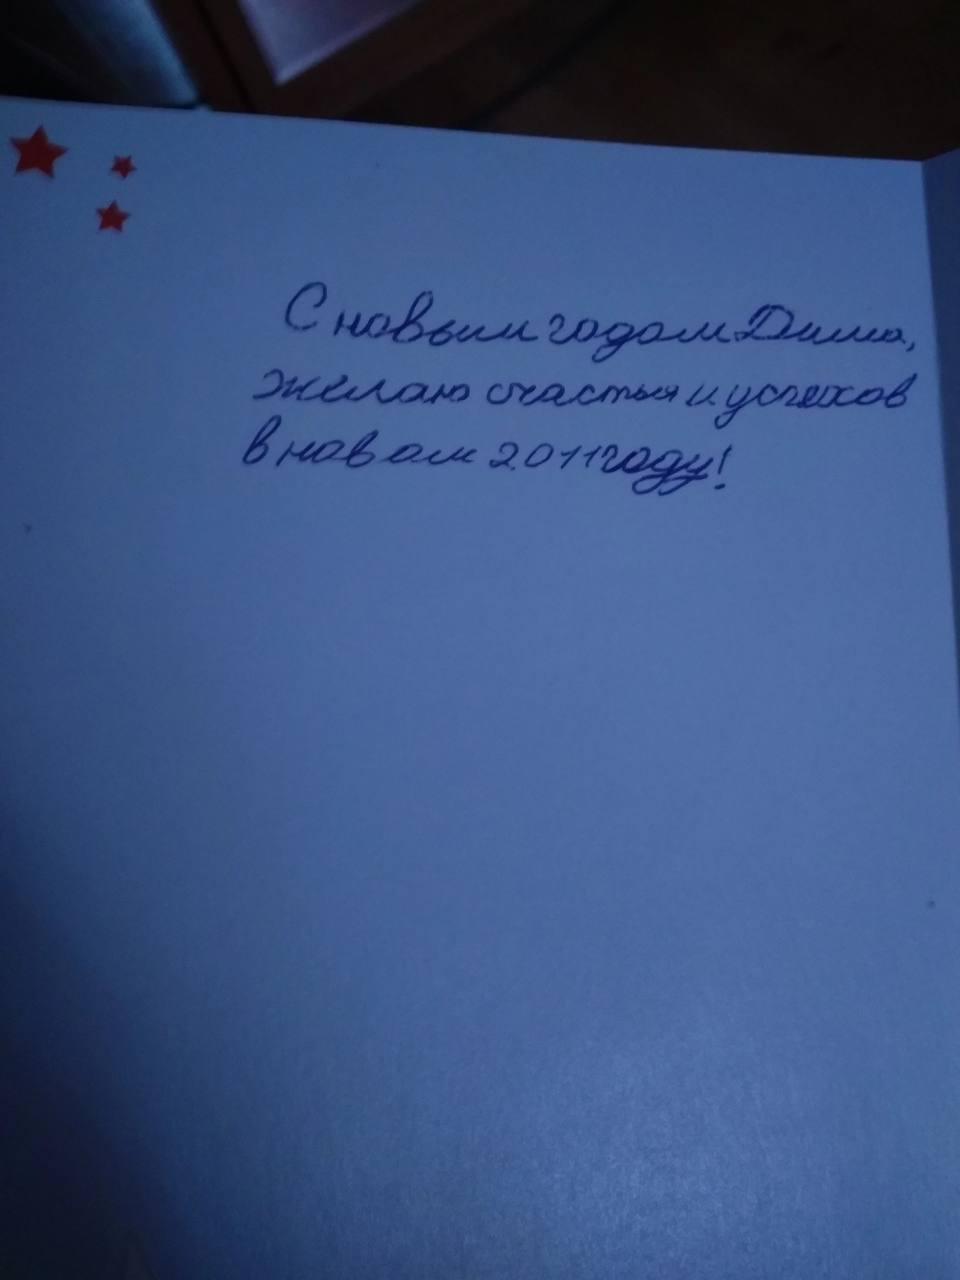 С новым годом Дима,
желаю счастья и успехов
в новом 2011 году!